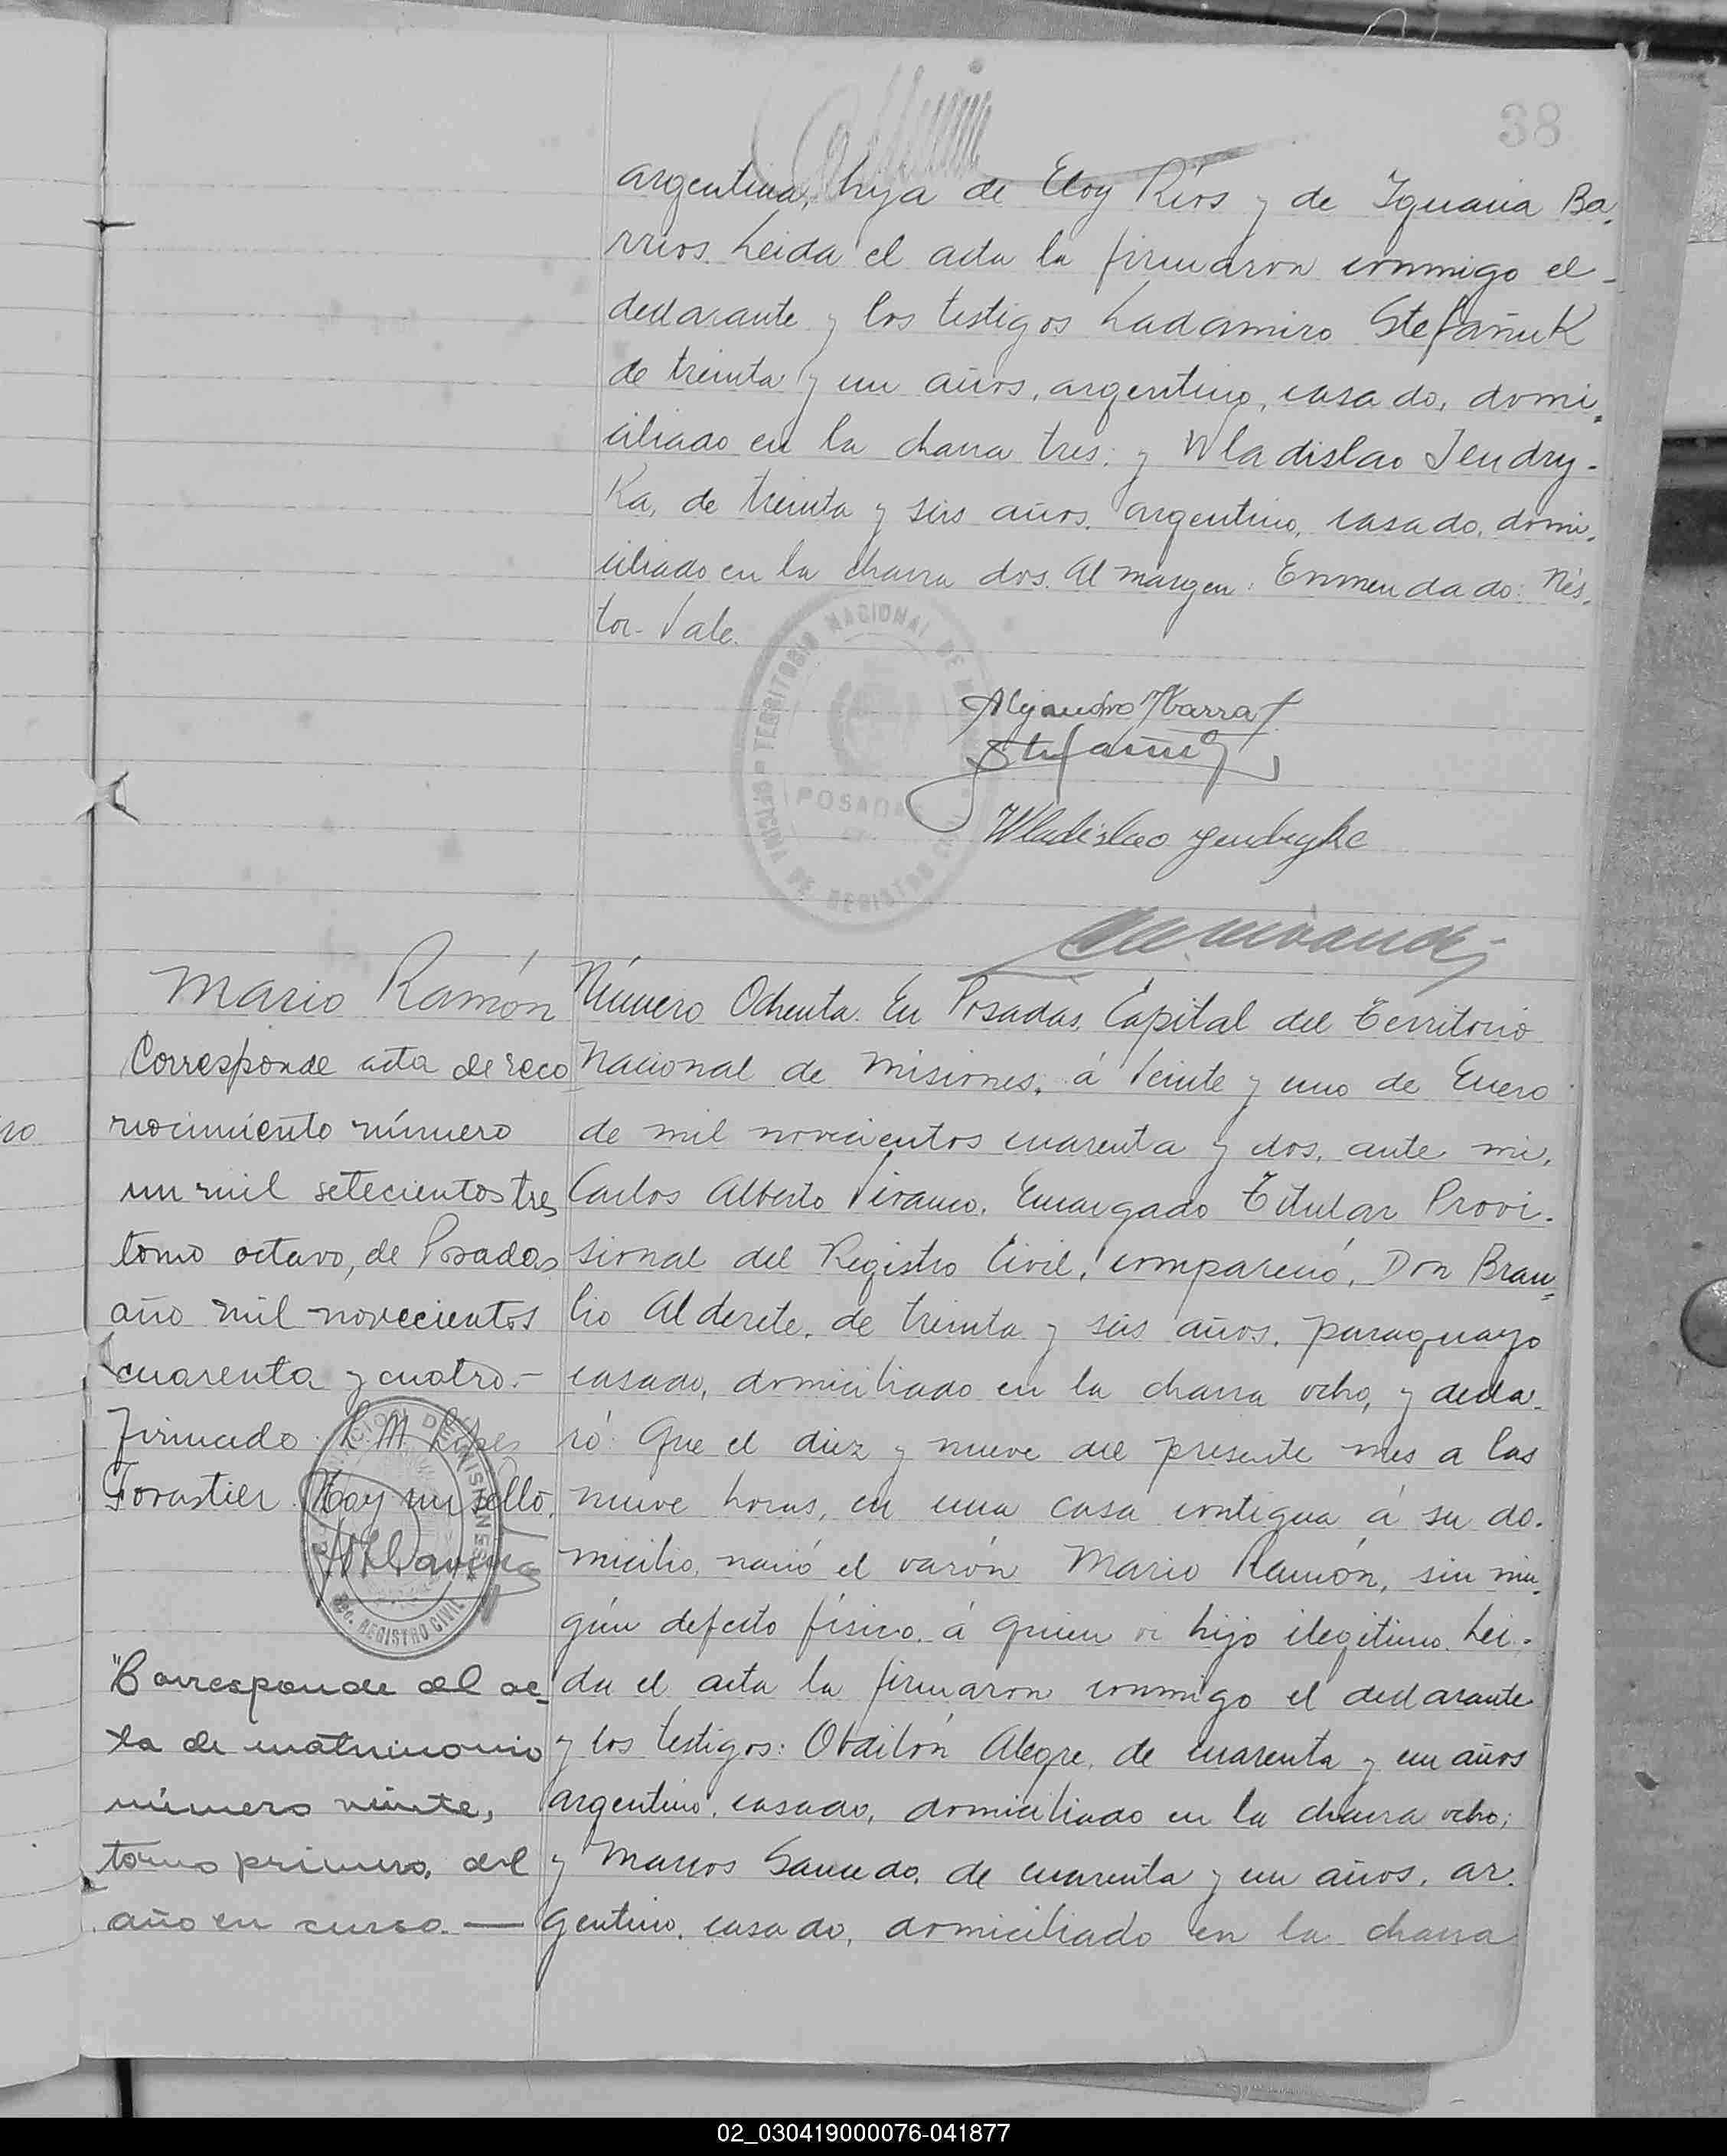 38
argentina, hija de Eloy Ríos y de Ignacia Ba-
rrios. Leida el acta la firmaron conmigo el
declarante y los testigos Ladamiro Stefañuk
de treinta y un años, argentino, casado, domi-
ciliado en la chacra tres; y Wladislao Jendry-
ka, de treinta y seis años, argentino, casado, domi-
ciliado en la chacra dos. Al margen: Enmendado: Nés-
tor. Vale.
TERRITORIO NACIONAL DE
POSADAS
OFICINA DE REGISTRO
Alejandro Ybarra
Stefañuk
Wladislao Jendryka
Mario Ramón
Corresponde acta de reco
nocimiento número
un mil setecientos tres
tomo octavo, de Posadas
año mil novecientos
cuarenta y cuatro.-
Firmado L. M. López
Forastier. Hay un sello.
DE MISIONES
REGISTRO CIVIL
"Corresponde al ac-
ta de matrimonio
número veinte,
tomo primero, del
año en curso. —
Número Ochenta. En Posadas, Capital del Territorio
Nacional de Misiones, á Veinte y uno de Enero
de mil novecientos cuarenta y dos, ante mi,
Carlos Alberto Vivanco, Encargado Titular Provi-
sional del Registro Civil, compareció, Don Brau-
lio Alderete, de treinta y seis años, paraguayo
casado, domiciliado en la chacra ocho, y decla-
ró: Que el diez y nueve del presente mes a las
nueve horas, en una casa contigua á su do-
micilio, nació el varón Mario Ramón, sin nin-
gún defecto físico, á quien vi hijo ilegitimo. Lei-
da el acta la firmaron conmigo el declarante
y los testigos: Obdilón Alegre, de cuarenta y un años
argentino, casado, domiciliado en la chacra ocho;
y Marcos Saucedo, de cuarenta y un años, ar-
gentino, casado, domiciliado en la chacra
02_030419000076-041877